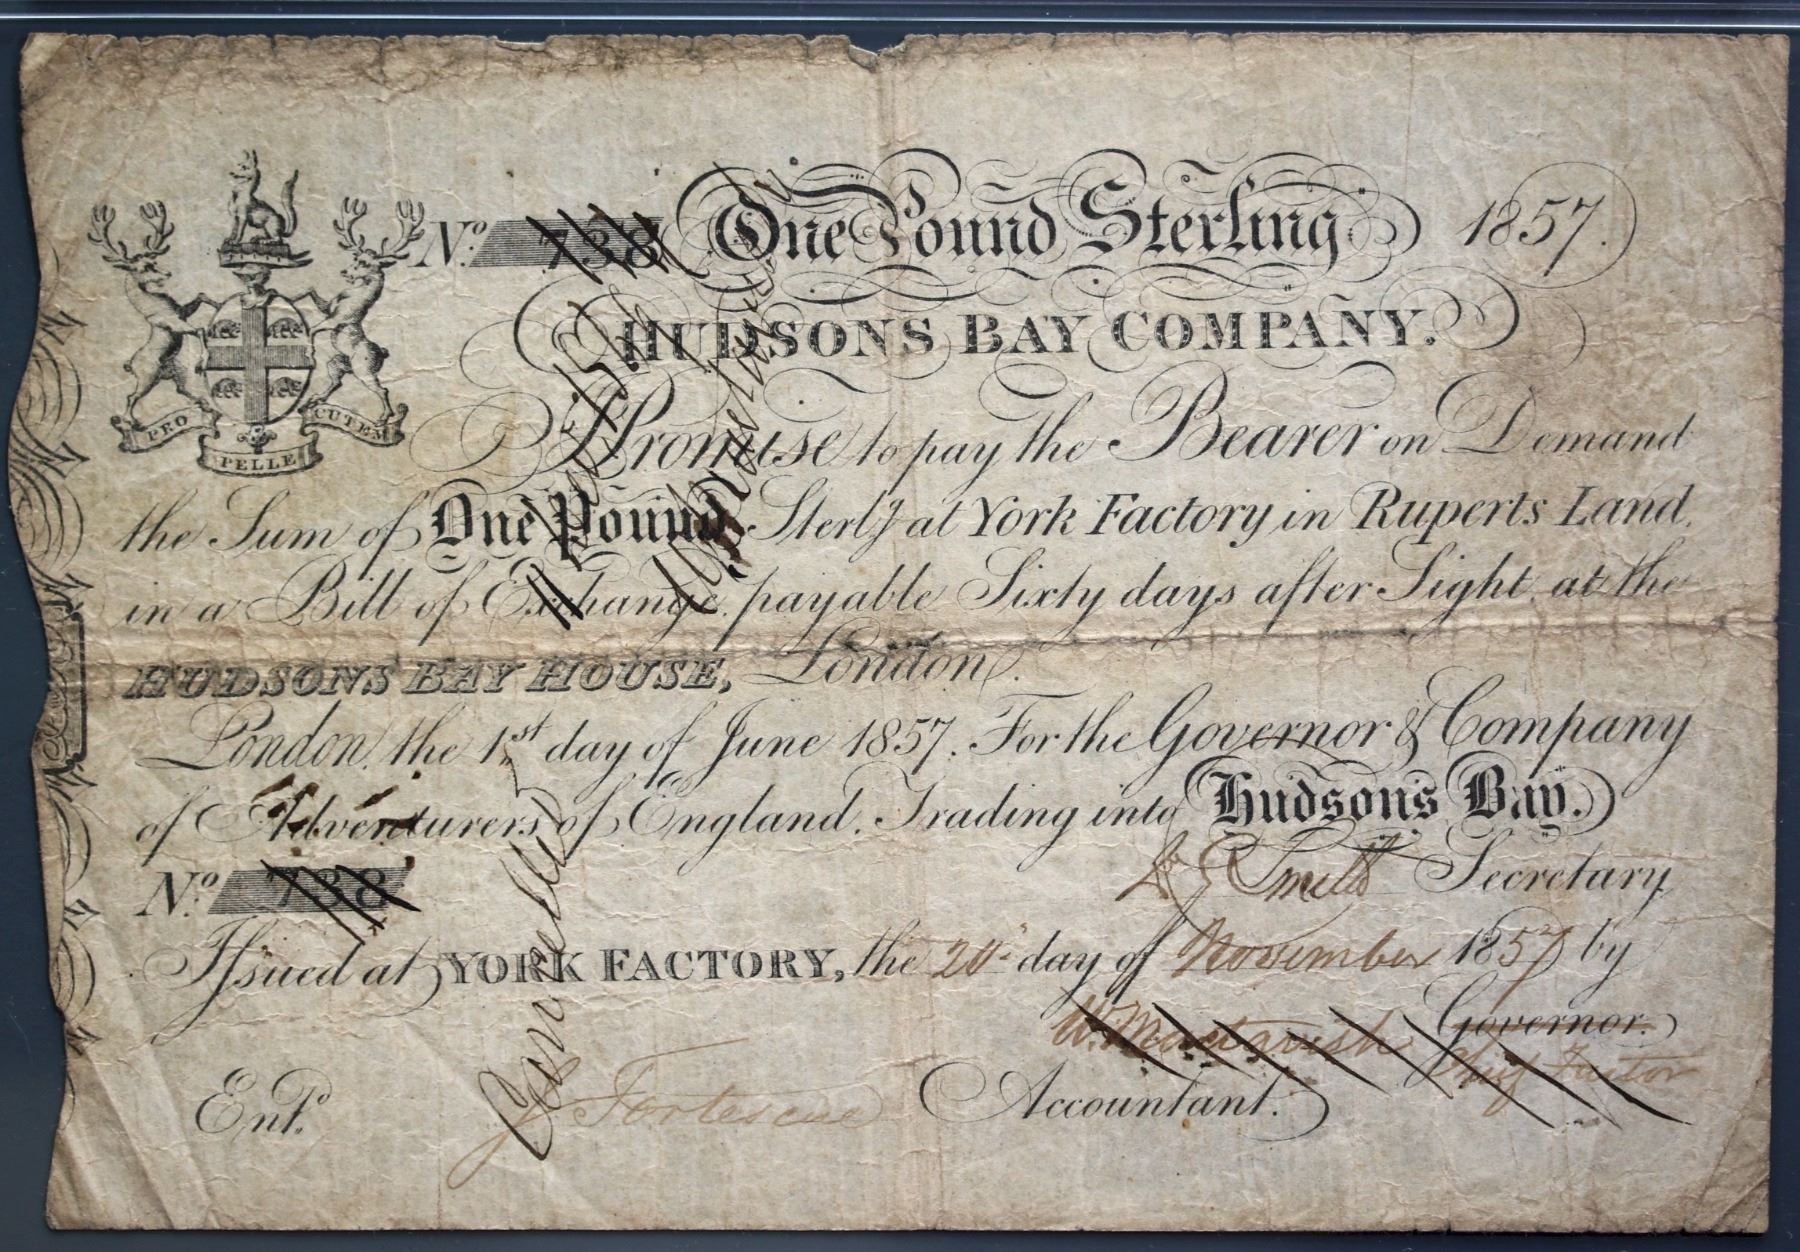 No. 738 One Pound Sterling 1857.
HUDSONS BAY COMPANY.
PRO PELLE CUTEM
I Promise to pay the Bearer on Demand
the Sum of One Pound Sterlg. at York Factory in Ruperts Land,
in a Bill of Exchange, payable Sixty days after Sight, at the
HUDSONS BAY HOUSE, London.
London, the 1st day of June 1857. For the Governor & Company
of Adventurers of England, Trading into Hudson's Bay.
Smith Secretary
No. 738
Issued at YORK FACTORY, the 20th day of November 1857 by
W. Mactavish Governor.
Chief Factor
Entd. J Fortescue Accountant.
Cancelled